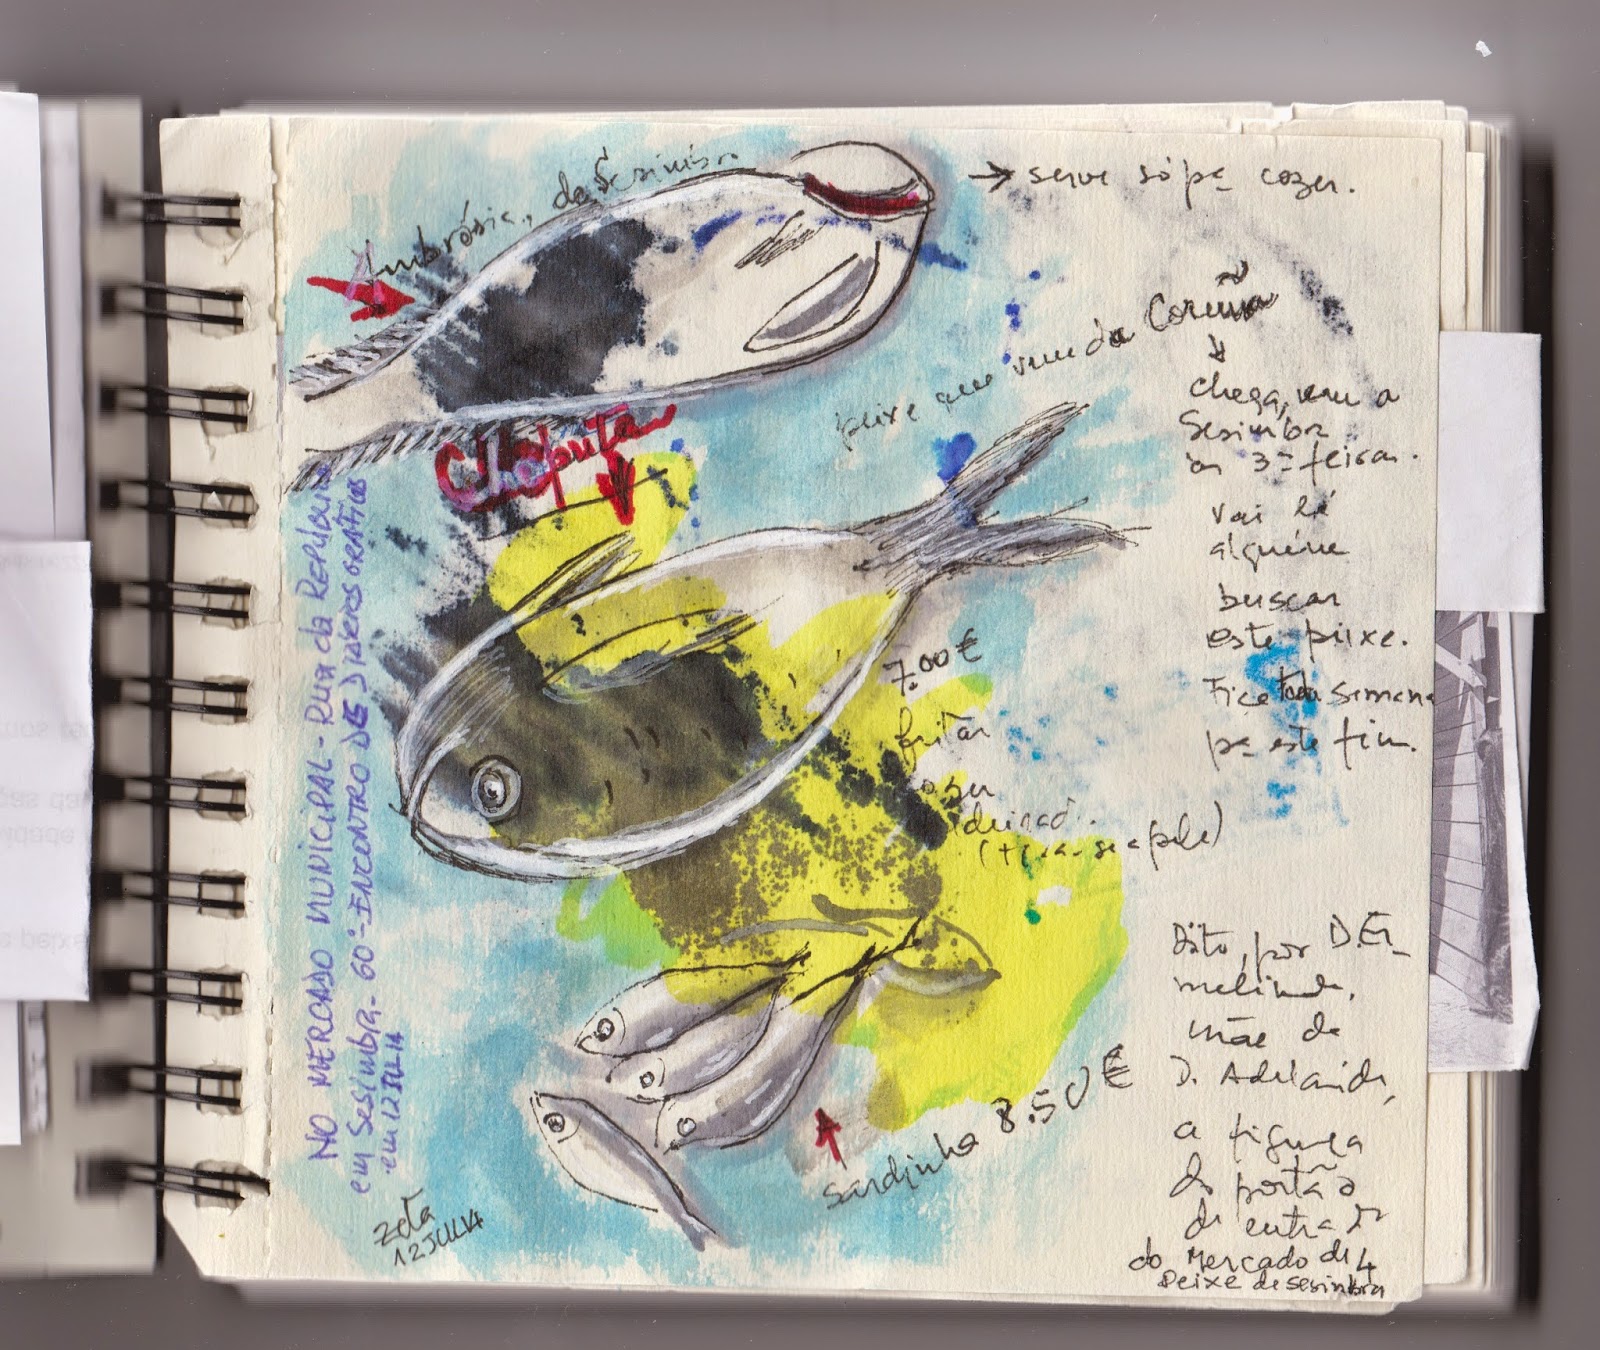 Ambrósia, de Sesimbra
→ serve só pa cozer.
peixe que vem da Coruña
chega, vem a
Sesimbra
às 3ªs feiras.
vai lá
alguém
buscar
este peixe.
Fica toda semana
pa este fim.
Choputa
7.00€
fritar
cozer
(tira-se a pele)
Sardinha 8.50€
Dito, por D. Er-
melinda,
mãe da
D. Adelaide,
a figura
do portão
de entrada
do Mercado de
Peixe de sesimbra
NO MERCADO MUNICIPAL - Rua da República
em Sesimbra - 60º- ENCONTRO DE DIÁRIOS GRÁFICOS
em 12 JUL 14
Zeta
12 JUL 14